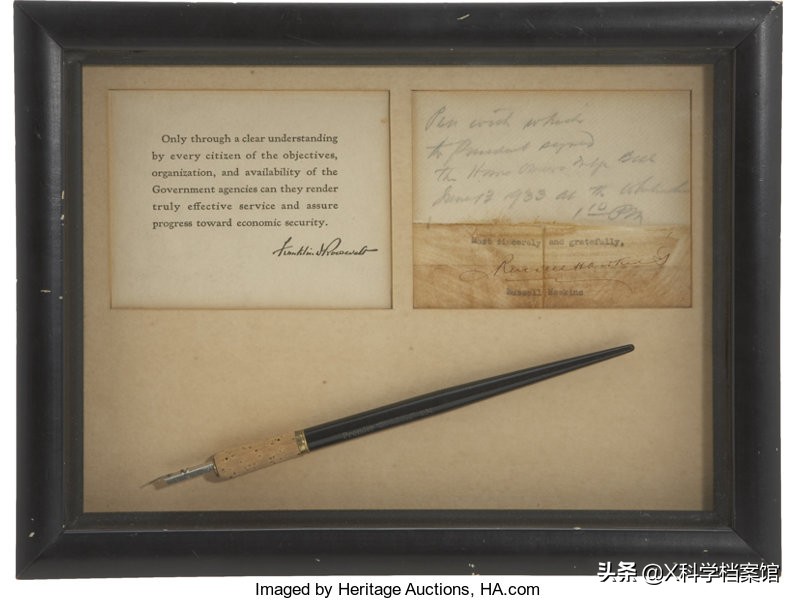 Only through a clear understanding
by every citizen of the objectives,
organization, and availability of the
Government agencies can they render
truly effective service and assure
progress toward economic security.
Franklin D Roosevelt
Pen with which
the President signed
the Home Owners Bill
June 13 1933 at the
1 10 PM
Most sincerely and gratefully,
Russell
Imaged by Heritage Auctions, HA.com
头条 @X科学档案馆